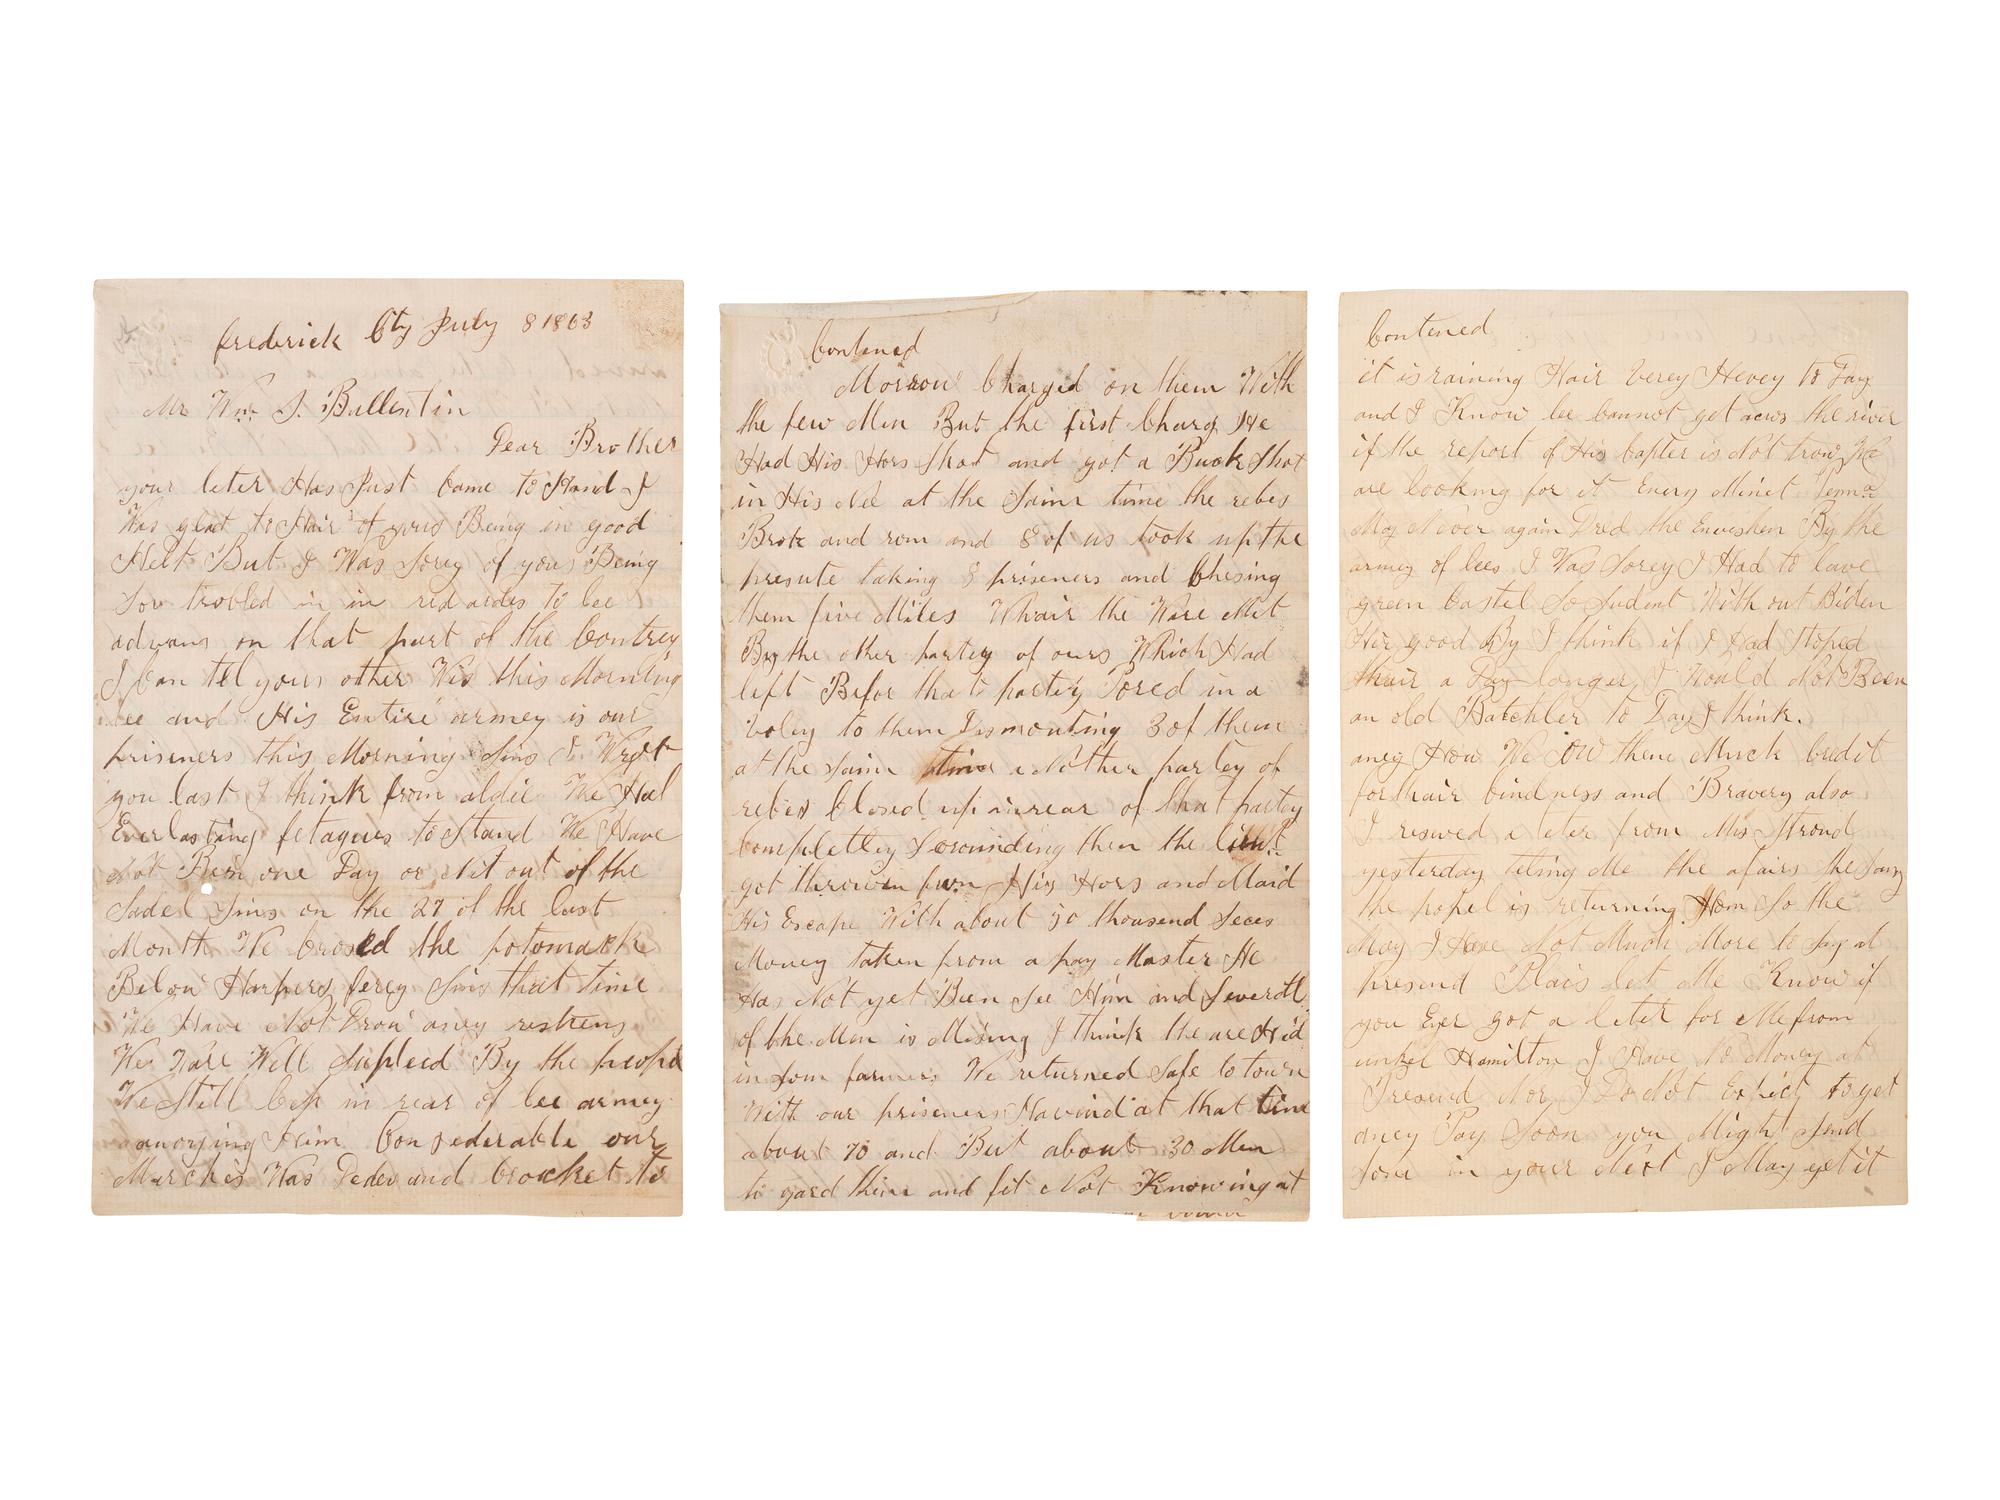 frederick City July 8 1863
Mr Wm J. Ballentin
Dear Brother
your leter Has Just Came to Hand I
Was glad to Hair of yours Being in good
Helt But I Was Sorey of your Being
Sow trobled in in red aides to lee
advans on that part of the Contrey
I Can tel yours other Wis this Morning
lee and His Entire armey is our
prisners this Morning Sins I Wrot
you last I think from aldie We Had
Everlasting fetagues to Stand We Have
Not Bem one Day or Nit out of the
Sadel Sins on the 27 of the last
Month We Crosed the potomack
Below Harpers ferey Sins that time
We Have Not Drou aney reshens
We Ware Well Supleed By the peopel
We Still Cep in rear of lee armey
anoying Him Confederable our
Marches Was Dedes and Crocket to
Contened
Morrow Charged on them With
the few Men But the first Charg He
Had His Hors Shot and got a Buck Shot
in His Ne at the Saim time the rebes
Brok and ron and 8 of us took up the
presute taking 8 prisners and Chesing
them five Miles Whair the Ware Met
By the other partey of ours Which Had
left Befor that partey Pored in a
voley to them Dismouting 3 of them
at the Saim time a Nother partey of
rebes Closed up in rear of that partey
Completley Serounding them the Lieut
got throwen from His Hors and Maid
His Escape With about 30 thousend Seces
Money taken from a pay Master He
Has Not yet Bin See Him and Severell
of the Men is Mising I think the are Hid
in Som farmers We returned Safe to town
With our prisners Havind at that time
about 70 and But about 30 Men
to gard them and fet Not Knowing at
Contened
it is raining Hair verey Hevey to Day
and I Know lee Cannot get acros the river
if the report of His Capter is Not trow We
are looking for it Every Minet Penna
May Never again Dred the Envishen By the
armey of lees I Was Sorey I Had to lave
green Castel So Sudent With out Biden
Hir good By I think if I Had Stoped
thair a Day longer I Would Not Been
an old Batchler to Day I think.
aney How We OW them Much Credit
for thair Cindness and Bravery also
I resived a leter from Mis Stroud
yesterday teling Me the afairs the Say
the popel is returning Hom So the
May I Have Not Much More to Say at
presend Plais let Me Know if
you Ever got a leter for Me from
unkel Hamilton I Have No Money at
Presend Nor I Do Not Expect to get
aney Pay Soon you Migh Send
Som in your Next I May get it